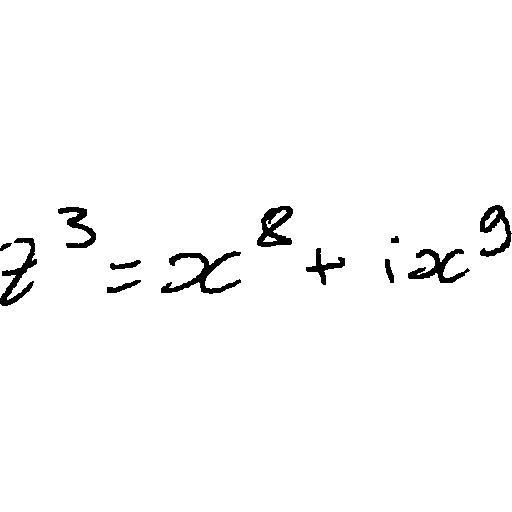 z³ = x⁸ + ix⁹